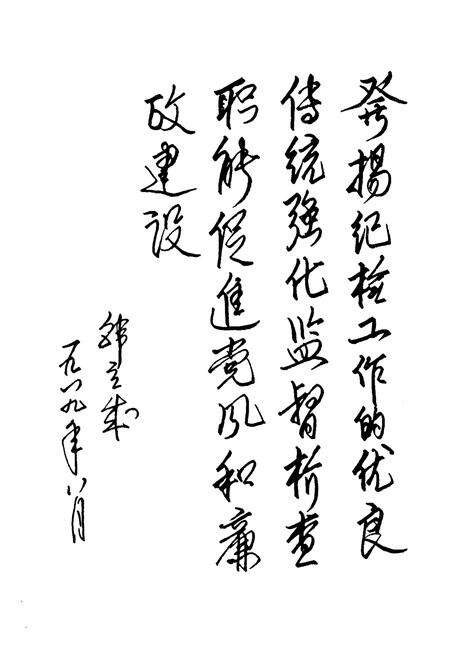 發揚纪检工作的优良
傳统强化监督检查
职能促進党风和廉
政建设
韩立成
一九八九年八月